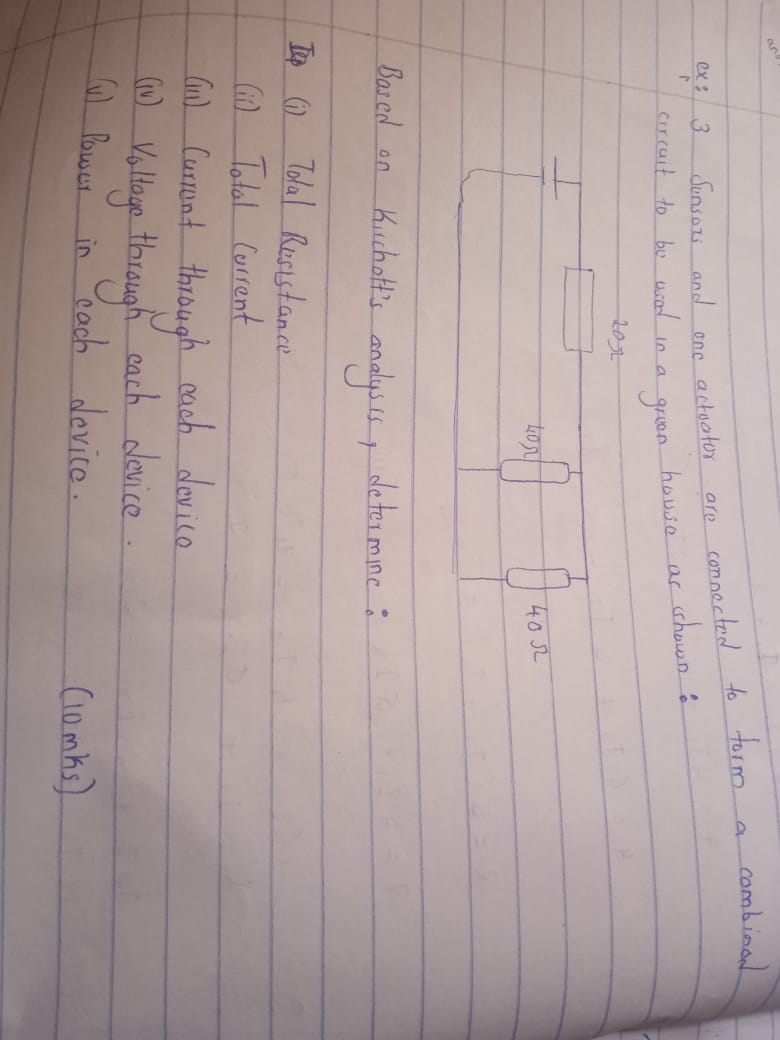 ex: 3 Sensors and one actuator are connected to form a combined
circuit to be used in a green house as shown :
20Ω
40Ω
40Ω
Based on Kirchoff's analysis, determine :
(i) Total Resistance
(ii) Total Current
(iii) Current through each device
(iv) Voltage through each device.
(v) Power in each device.
(10mks)